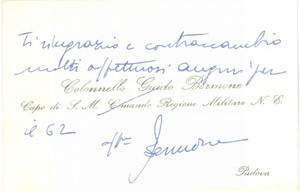 Ti ringrazio e contraccambio
molti affettuosi auguri per
Colonnello Guido Bermone
Capo di S. M. Comando Regione Militare N. E.
il 62
aff.mo Bermone
Padova